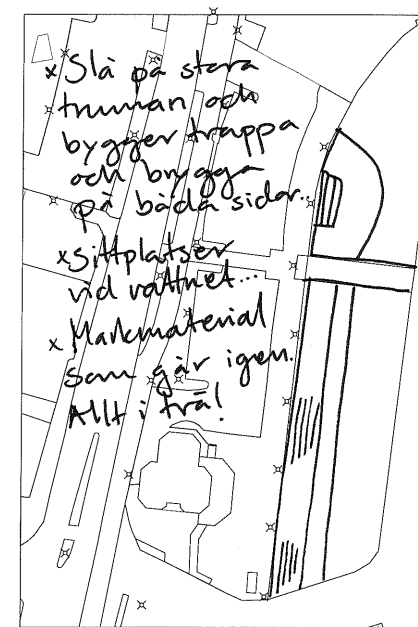 x Slå på stora
trumman och
bygger trappa
och brygga
på båda sidor..
x sittplatser
vid vattnet...
x Markmaterial
som går igen.
Allt i trä!